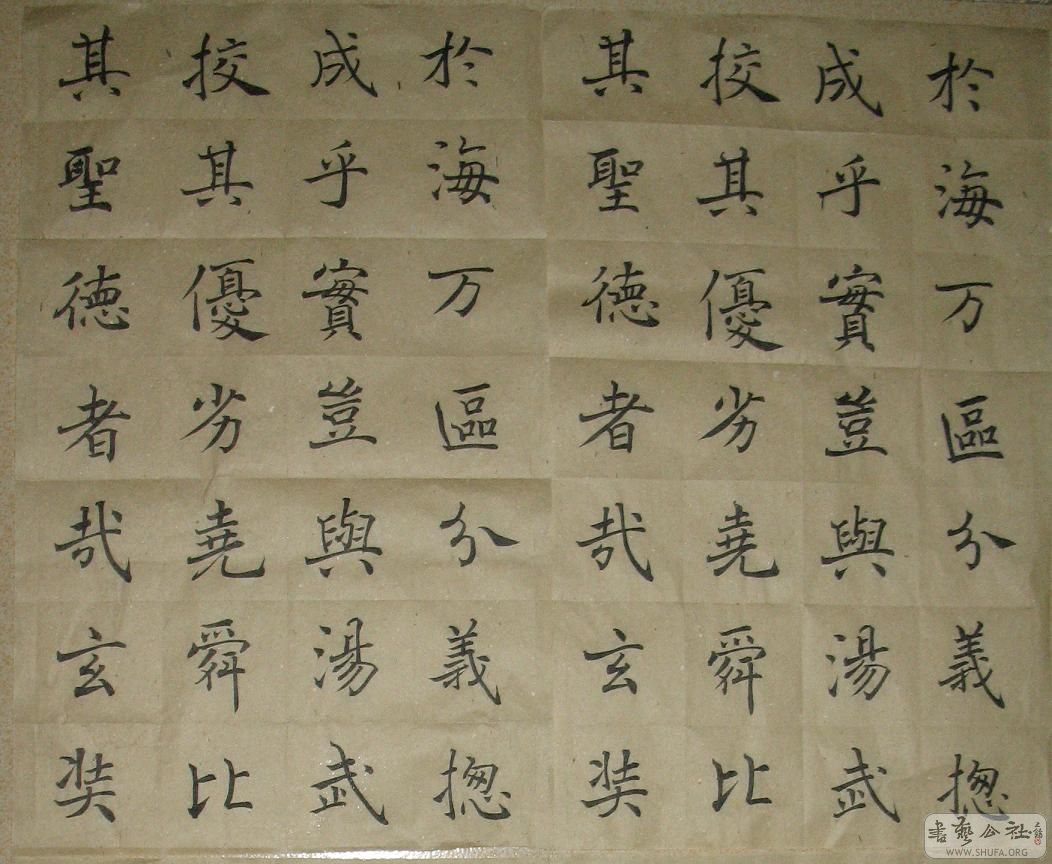 於海万區分義揔
成乎實豈與湯武
挍其優劣堯舜比
其聖徳者哉玄奘
於海万區分義揔
成乎實豈與湯武
挍其優劣堯舜比
其聖徳者哉玄奘
書藝公社
WWW.SHUFA.ORG